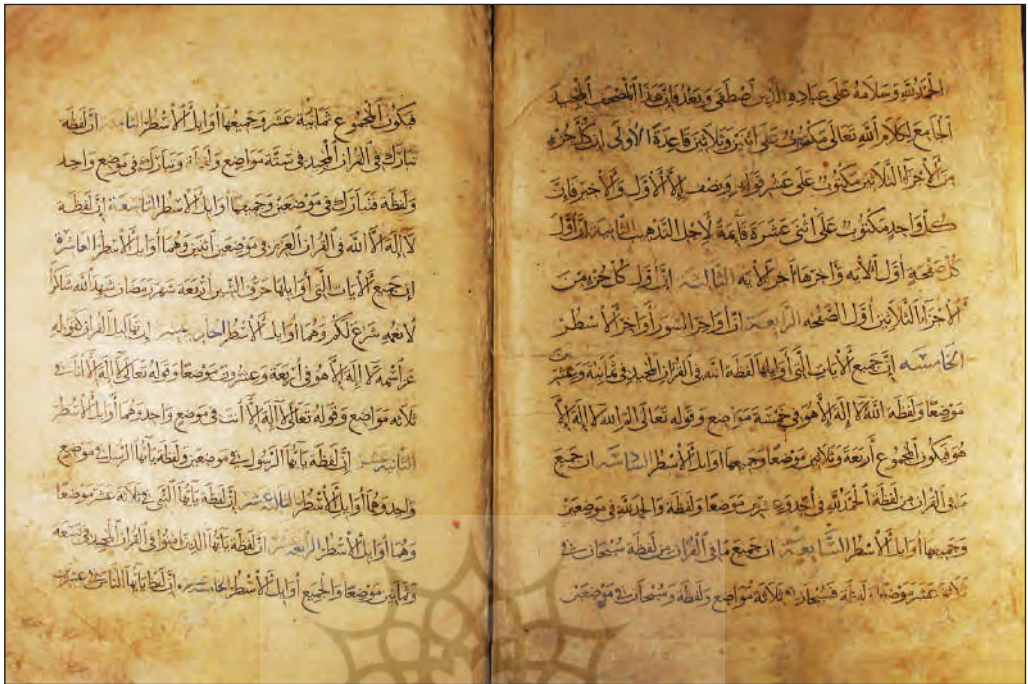 الحمد لله وسلامه على عباده الذين اصطفى وبعد فان هذا المصحف المجيد
الجامع لكلام الله تعالى مكتوب على اثنين وثلاثين قاعدة الأولى ان كل جزء
من الأجزاء الثلاثين مكتوب على عشر قوايم ونصف إلا الأول والأخير فإن
كل واحد مكتوب على اثنى عشرة قائمة لأجل التذهيب الثانية ان أول
كل صفحة أول الأيه وآخرها آخر الأيه الثالثه ان أول كل جزء من
الأجزاء الثلاثين أول الصفحه الرابعة ان أواخر السور أواخر الأسطر
الخامسه إن جميع الأيات التي أوايلها لفظة الله في القران المجيد في ثمانية وعشرين
موضعا ولفظه الله لا إله إلا هو في خمسة مواضع وقوله تعالى الم الله لا اله إلا
هو فيكون المجموع أربعة وثلاثين موضعا وجميعها أوايل الأسطر السادسه ان جميع
ما في القران من لفظة الحمد لله في أحد وعشرين موضعا ولفظة والحمد لله في موضعين
وجميعها أوايل الأسطر السابعة ان جميع ما في القران من لفظة سبحان في
ثلاثة عشر موضعا ولفظة فسبحان في ثلاثة مواضع ولفظة وسبحان في موضعين
فيكون المجموع ثمانية عشر وجميعها أوايل الأسطر الثامنة ان لفظة
تبارك في القران المجيد في ستة مواضع ولفظة وتبارك في موضع واحد
ولفظة فتبارك في موضعين وجميعها أوايل الأسطر التاسعة إن لفظة
لا إله إلا الله في القران العزيز في موضعين اثنين وهما أوايل الأسطر العاشرة
إن جميع الأيات التي أوايلها حرف الشين أربعة شهر رمضان شهد الله شاكرا
لأنعمه شرع لكم وهما أوايل الأسطر الحادية عشر إن القران كقوله
عز اسمه لا إله إلا هو في أربعة وعشرون موضعا وقوله تعالى لا إله إلا أنا في
ثلاثه مواضع وقوله تعالى لا إله إلا أنت في موضع واحد وهما أوايل الأسطر
الثانية عشر إن لفظة يايها الرسول في موضعين ولفظة يايها الرسل في موضع
واحد وهما أوايل الأسطر الثالثة عشر إن لفظة يايها النبي في ثلاثة عشر موضعا
وهما أوايل الأسطر الرابعة عشر ان لفظة يايها الذين امنوا في القران المجيد في تسعه
وثمانين موضعا والجميع أوايل الأسطر الخامسة عشر إن لفظة يايها الناس في عشرين